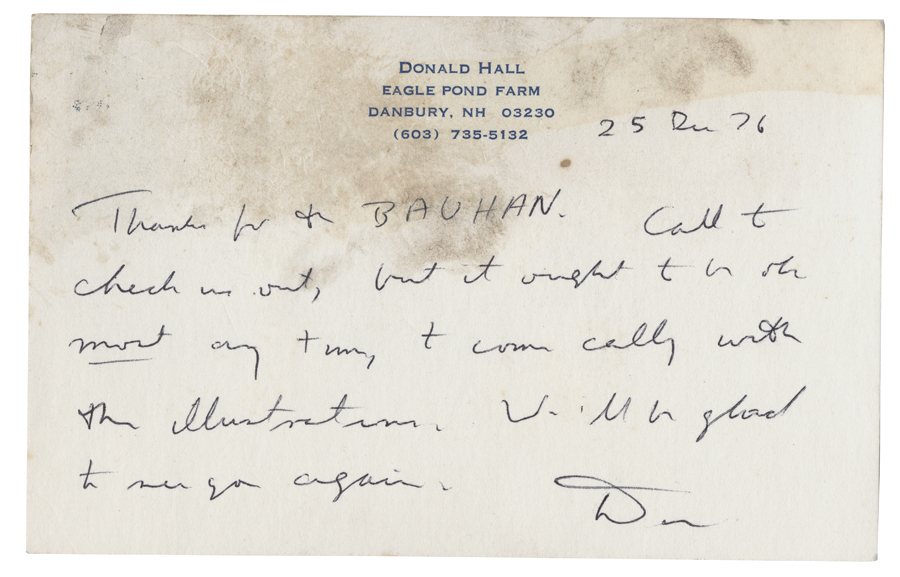 DONALD HALL
EAGLE POND FARM
DANBURY, NH 03230
(603) 735-5132
25 Dec 76
Thanks for the BAUHAN. Call to
check us out, but it ought to be ok
most any time, to come calling with
the illustrations. We'll be glad
to see you again.
Don